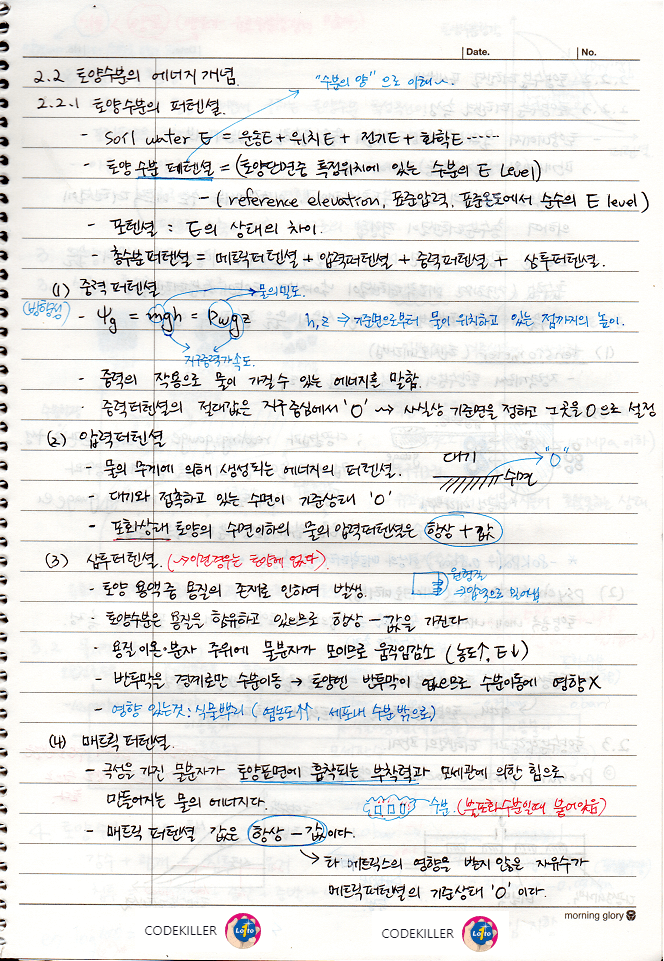 Date.
No.
2.2 토양수분의 에너지 개념.
"수분의 양" 으로 이해
2.2.1 토양수분의 퍼텐셜.
- Soil water E = 운동E + 위치E + 전기E + 화학E ······
- 토양 수분 퍼텐셜 = (토양단면중 특정위치에 있는 수분의 E level)
- (reference elevation, 표준압력, 표준온도에서 순수의 E level)
- 포텐셜 : E의 상태의 차이.
- 총수분퍼텐셜 = 매트릭퍼텐셜 + 압력퍼텐셜 + 중력퍼텐셜 + 삼투퍼텐셜.
(1) 중력퍼텐셜
물의밀도.
(방향성)
- Ψg = mgh = ρwgz
h, z ⇒ 기준면으로부터 물이 위치하고 있는 점까지의 높이.
지구중력가속도.
- 중력의 작용으로 물이 가질 수 있는 에너지를 말함.
- 중력퍼텐셜의 절대값은 지구중심에서 '0' → 사실상 기준면을 정하고 그곳을 0으로 설정
(2) 압력퍼텐셜
- 물의 무게에 의해 생성되는 에너지의 퍼텐셜.
대기
"0"
수면
- 대기와 접촉하고 있는 수면이 기준상태 '0'
- 포화상태 토양의 수면이하의 물의 압력퍼텐셜은 항상 + 값
(3) 삼투퍼텐셜. (→이런경우는 토양에 없다).
- 토양 용액중 용질의 존재로 인하여 발생.
⇒ 압력으로 밀어냄
- 토양수분은 용질을 함유하고 있으므로 항상 - 값을 가진다
- 용질 이온·분자 주위에 물분자가 모이므로 움직임감소 (농도↑, E↓)
- 반투막을 경계로만 수분이동 → 토양엔 반투막이 없으므로 수분이동에 영향 X
- 영향 있는것 : 식물뿌리 ( 염농도↑↑, 세포내 수분 밖으로)
(4) 매트릭 퍼텐셜.
- 극성을 가진 물분자가 토양표면에 흡착되는 부착력과 모세관에 의한 힘으로
만들어지는 물의 에너지다.
수분. (불포화수분일때 붙어있음)
- 매트릭 퍼텐셜 값은 항상 - 값이다.
→ 타 메트릭스의 영향을 받지 않은 자유수가
메트릭퍼텐셜의 기준상태 '0' 이다.
morning glory
CODEKILLER
Lotto
CODEKILLER
Lotto